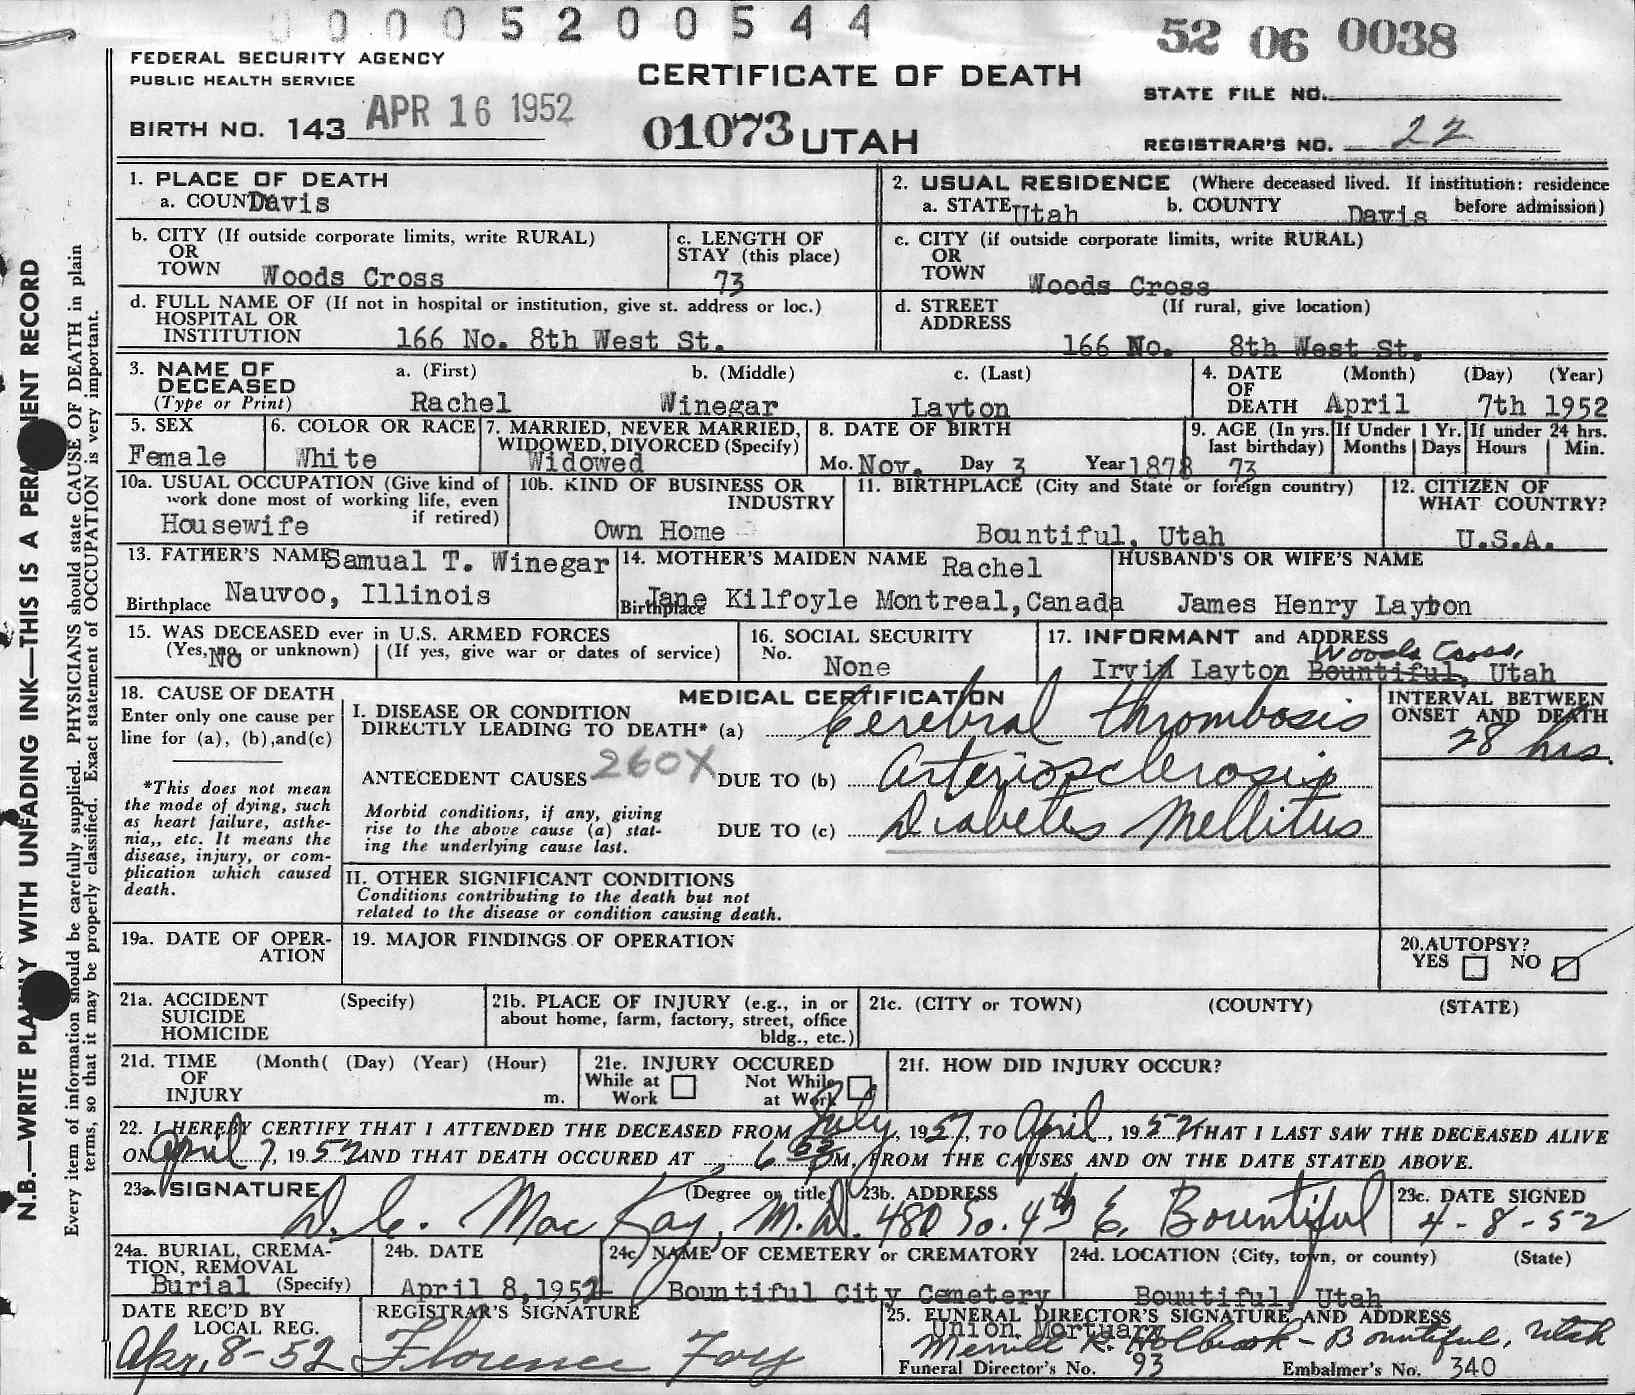 0 0 0 5 2 0 0 5 4 4
52 06 0038
FEDERAL SECURITY AGENCY
PUBLIC HEALTH SERVICE
CERTIFICATE OF DEATH
STATE FILE NO.
BIRTH NO. 143 APR 16 1952
01073 UTAH
REGISTRAR'S NO. 22
1. PLACE OF DEATH
a. COUN Davis
2. USUAL RESIDENCE (Where deceased lived. If institution: residence before admission)
a. STATE Utah b. COUNTY Davis
b. CITY (If outside corporate limits, write RURAL)
OR
TOWN Woods Cross
c. LENGTH OF
STAY (this place)
73
c. CITY (if outside corporate limits, write RURAL)
OR
TOWN Woods Cross
d. FULL NAME OF (If not in hospital or institution, give st. address or loc.)
HOSPITAL OR
INSTITUTION 166 No. 8th West St.
d. STREET (If rural, give location)
ADDRESS
166 No. 8th West St.
3. NAME OF DECEASED
(Type or Print)
a. (First) b. (Middle) c. (Last)
Rachel Winegar Layton
4. DATE OF DEATH (Month) (Day) (Year)
April 7th 1952
5. SEX
Female
6. COLOR OR RACE
White
7. MARRIED, NEVER MARRIED,
WIDOWED, DIVORCED (Specify)
Widowed
8. DATE OF BIRTH
Mo. Nov. Day 3 Year 1878
9. AGE (In yrs. last birthday)
73
If Under 1 Yr. Months Days
If under 24 hrs. Hours Min.
10a. USUAL OCCUPATION (Give kind of
work done most of working life, even
if retired)
Housewife
10b. KIND OF BUSINESS OR
INDUSTRY
Own Home
11. BIRTHPLACE (City and State or foreign country)
Bountiful, Utah
12. CITIZEN OF
WHAT COUNTRY?
U.S.A.
13. FATHER'S NAME Samual T. Winegar
Birthplace Nauvoo, Illinois
14. MOTHER'S MAIDEN NAME Rachel
Birthplace Jane Kilfoyle Montreal, Canada
HUSBAND'S OR WIFE'S NAME
James Henry Layton
15. WAS DECEASED ever in U.S. ARMED FORCES
(Yes, no, or unknown) (If yes, give war or dates of service)
No
16. SOCIAL SECURITY
No.
None
17. INFORMANT and ADDRESS
Woods Cross,
Irvin Layton Bountiful, Utah
18. CAUSE OF DEATH
Enter only one cause per
line for (a), (b), and (c)
*This does not mean
the mode of dying, such
as heart failure, asthe-
nia,, etc. It means the
disease, injury, or com-
plication which caused
death.
MEDICAL CERTIFICATION
INTERVAL BETWEEN
ONSET AND DEATH
I. DISEASE OR CONDITION
DIRECTLY LEADING TO DEATH* (a) Cerebral thrombosis
28 hrs.
ANTECEDENT CAUSES 260X DUE TO (b) Arteriosclerosis
Morbid conditions, if any, giving
rise to the above cause (a) stat-
ing the underlying cause last.
DUE TO (c) Diabetes Mellitus
II. OTHER SIGNIFICANT CONDITIONS
Conditions contributing to the death but not
related to the disease or condition causing death.
19a. DATE OF OPER-
ATION
19. MAJOR FINDINGS OF OPERATION
20. AUTOPSY?
YES NO
21a. ACCIDENT (Specify)
SUICIDE
HOMICIDE
21b. PLACE OF INJURY (e.g., in or
about home, farm, factory, street, office
bldg., etc.)
21c. (CITY or TOWN) (COUNTY) (STATE)
21d. TIME (Month( (Day) (Year) (Hour)
OF
INJURY m.
21e. INJURY OCCURED
While at Work
Not While at Work
21f. HOW DID INJURY OCCUR?
22. I HEREBY CERTIFY THAT I ATTENDED THE DECEASED FROM July, 1951, TO April, 1952 THAT I LAST SAW THE DECEASED ALIVE
ON April 7, 1952 AND THAT DEATH OCCURED AT 6 PM, FROM THE CAUSES AND ON THE DATE STATED ABOVE.
23a. SIGNATURE (Degree or title)
D. C. Mac Kay, M.D.
23b. ADDRESS
480 So. 4th E. Bountiful
23c. DATE SIGNED
4-8-52
24a. BURIAL, CREMA-
TION, REMOVAL
(Specify) Burial
24b. DATE
April 8, 1952
24c. NAME OF CEMETERY or CREMATORY
Bountiful City Cemetery
24d. LOCATION (City, town, or county) (State)
Bountiful, Utah
DATE REC'D BY
LOCAL REG.
Apr, 8-52
REGISTRAR'S SIGNATURE
Florence Foy
25. FUNERAL DIRECTOR'S SIGNATURE AND ADDRESS
Union Mortuary
Merrill R. Holbrook - Bountiful, Utah
Funeral Director's No. 93 Embalmer's No. 340
N.B.—WRITE PLAINLY WITH UNFADING INK—THIS IS A PERMANENT RECORD
Every item of information should be carefully supplied. PHYSICIANS should state CAUSE OF DEATH in plain
terms, so that it may be properly classified. Exact statement of OCCUPATION is very important.